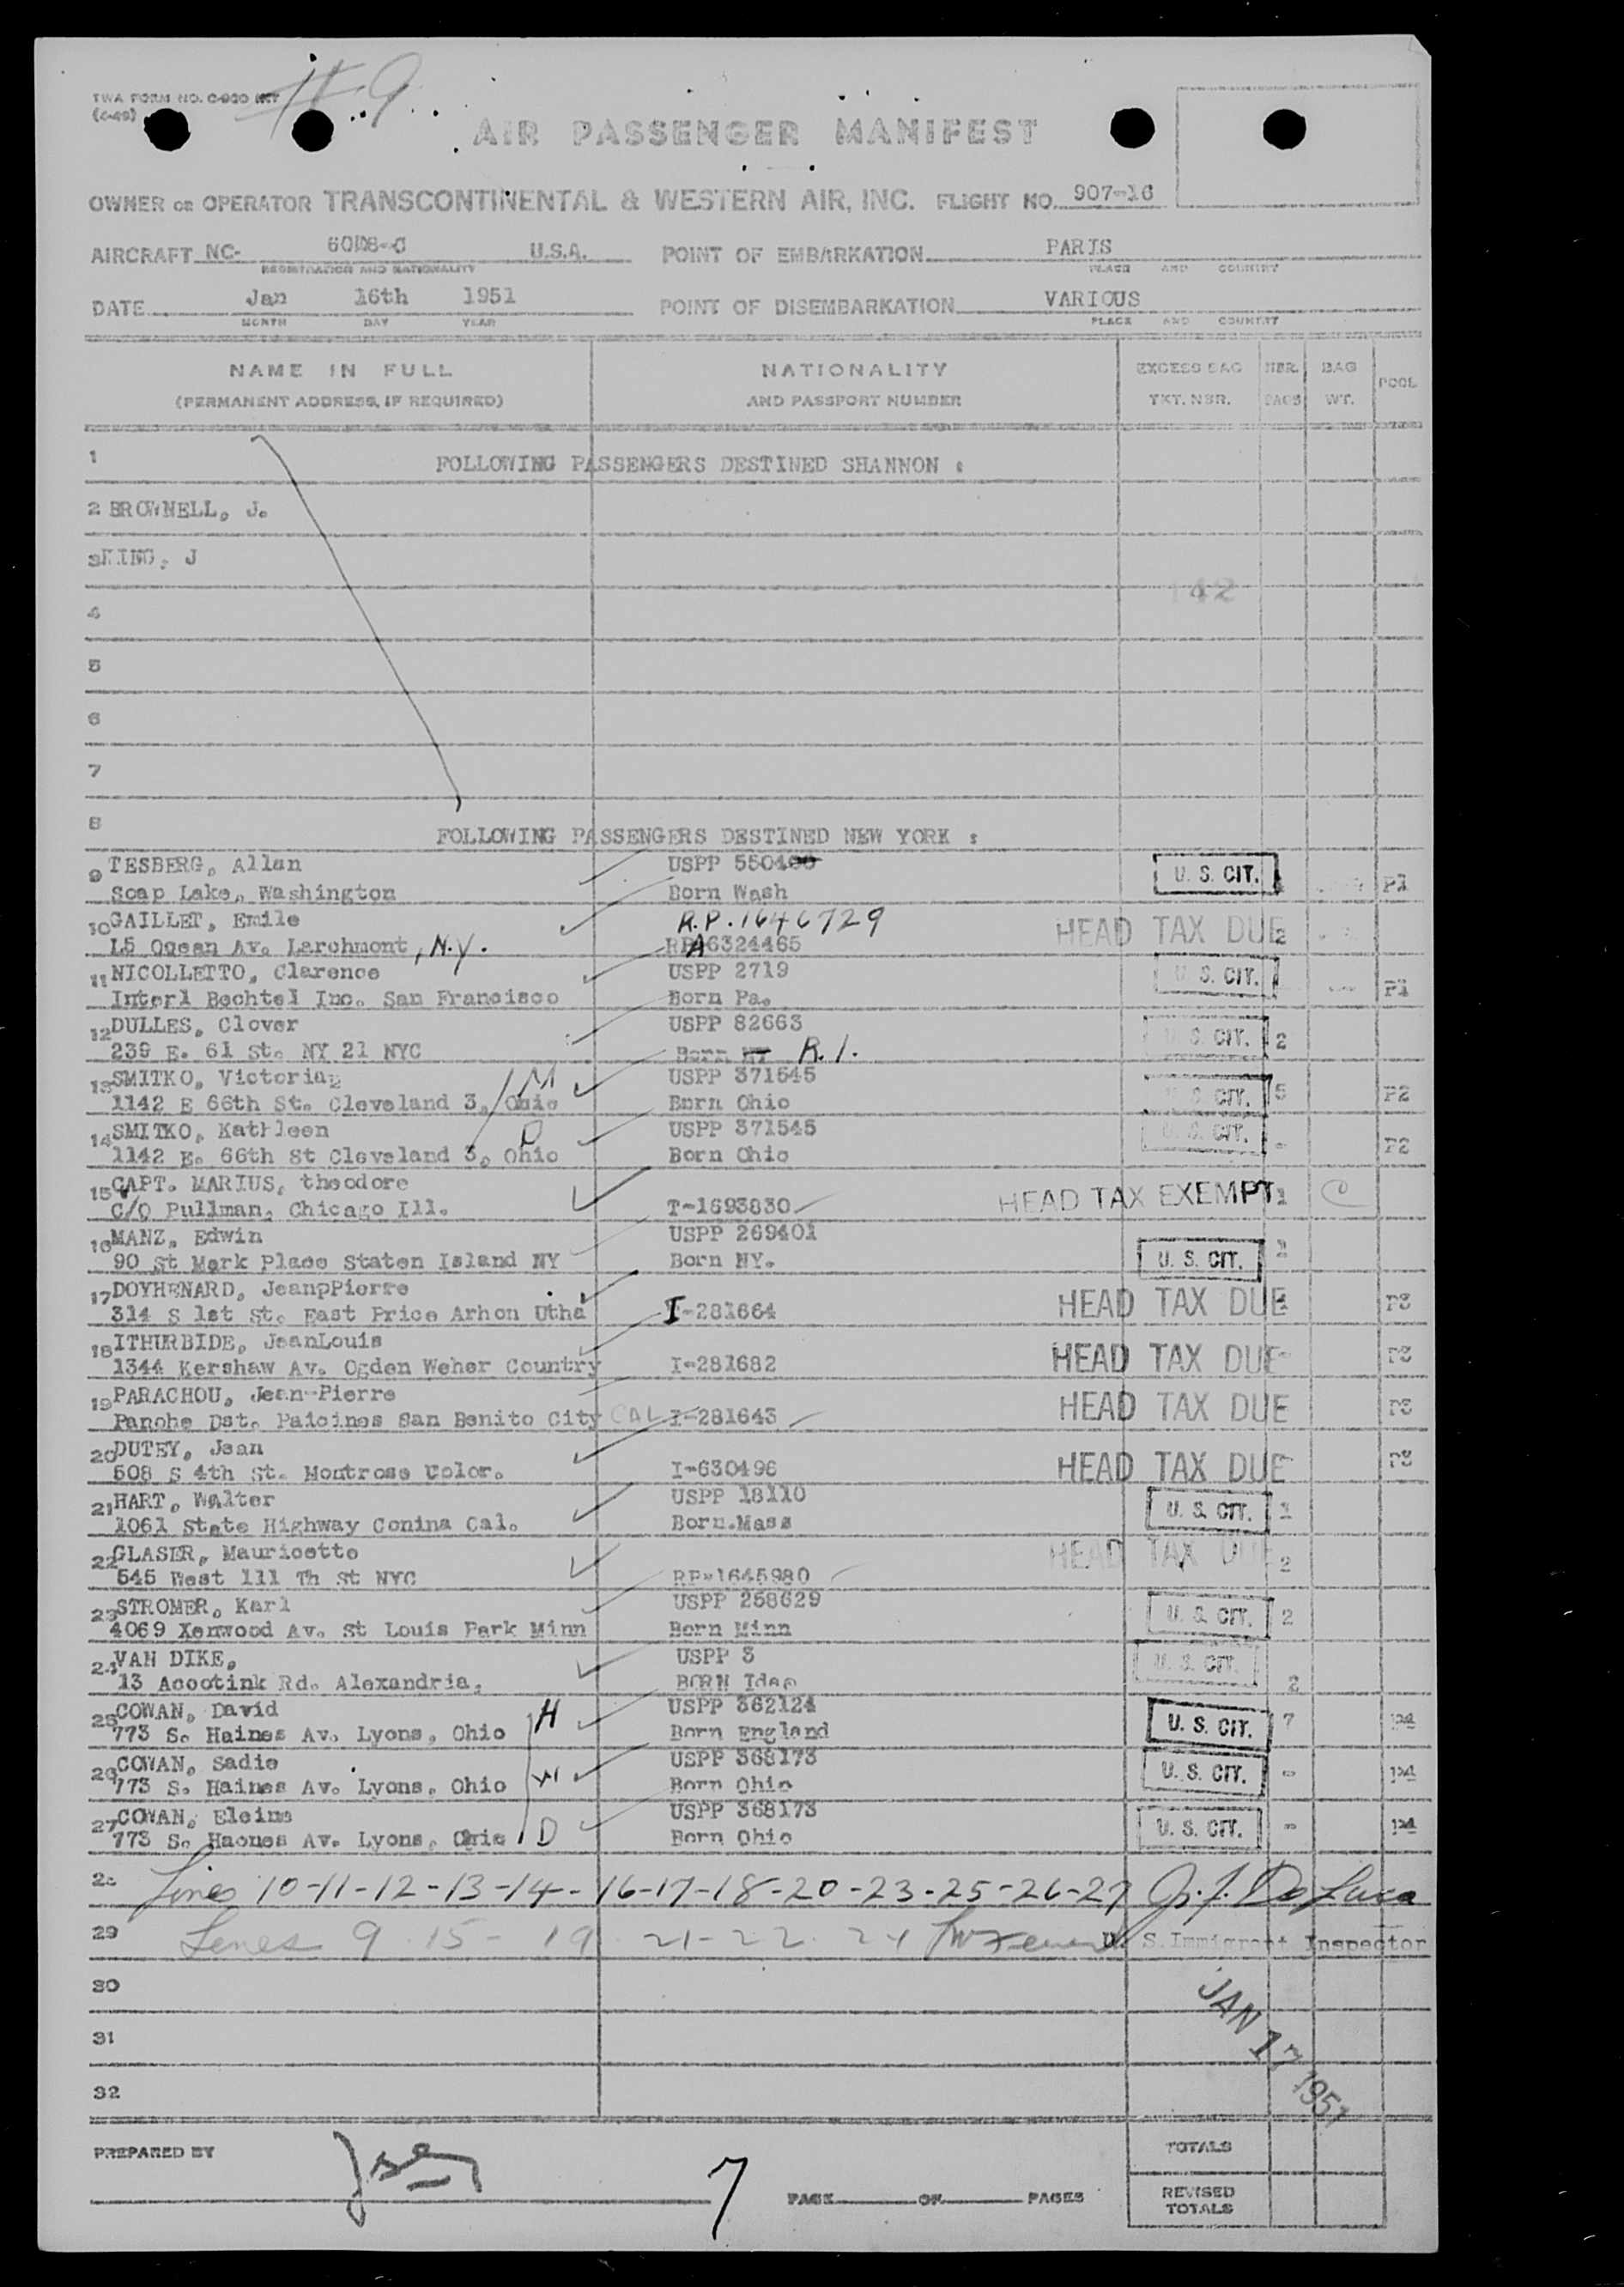 #9
TWA FORM NO. O-930 INT
(4-49)
AIR PASSENGER MANIFEST
OWNER OR OPERATOR TRANSCONTINENTAL & WESTERN AIR, INC. FLIGHT NO. 907-16
AIRCRAFT NC- U.S.A. POINT OF EMBARKATION PARIS
REGISTRATION AND NATIONALITY PLACE AND COUNTRY
DATE Jan 16th 1951 POINT OF DISEMBARKATION VARIOUS
MONTH DAY YEAR PLACE AND COUNTRY
NAME IN FULL NATIONALITY EXCESS BAG NBR. BAG POOL
(PERMANENT ADDRESS, IF REQUIRED) AND PASSPORT NUMBER TKT. NBR. BAGS WT.
1 FOLLOWING PASSENGERS DESTINED SHANNON :
2 BROWNELL, J.
3 KING, J
142
4
5
6
7
8 FOLLOWING PASSENGERS DESTINED NEW YORK :
9 TESBERG, Allan USPP U. S. CIT. P1
Soap Lake, Washington Born Wash
10 GAILLET, Emile R.P. 1646729 HEAD TAX DUE 2
15 Ocean Av. Larchmont, N.Y. A6324465
11 NICOLLETTO, Clarence USPP 2719 U. S. CIT. P1
Interl Bechtel Inc. San Francisco Born Pa.
12 DULLES, Clover USPP 82663 U. S. CIT. 2
239 E. 61 St. NY 21 NYC Born R.I.
13 SMITKO, Victoria M USPP 371545 U. S. CIT. 5 P2
1142 E 66th St. Cleveland 3, Ohio Born Ohio
14 SMITKO, Kathleen D USPP 371545 U. S. CIT. - P2
1142 E. 66th St Cleveland 3, Ohio Born Ohio
15 CAPT. MARIUS, theodore HEAD TAX EXEMPT 1 C
C/O Pullman, Chicago Ill. T-1693830
16 MANZ, Edwin USPP 269401 U. S. CIT.
90 St Mark Place Staten Island NY Born NY.
17 DOYHENARD, JeanpPierre HEAD TAX DUE P3
314 S 1st St. East Price Arhon Utha I-281664
18 ITHURBIDE, JeanLouis HEAD TAX DUE P3
1344 Kershaw Av. Ogden Weher Country I-281682
19 PARACHOU, Jean-Pierre HEAD TAX DUE P3
Panohe Dst. Paicines San Benito City CAL I-281643
20 DUTEY, Jean HEAD TAX DUE P3
508 S 4th St. Montrose Color. I-630496
21 HART, Walter USPP 18110 U. S. CIT. 1
1061 State Highway Conina Cal. Born.Mass
22 GLASER, Mauricette HEAD TAX DUE 2
545 West 111 Th St NYC RP-1645980
23 STROMER, Karl USPP 258629 U. S. CIT. 2
4069 Xenwood Av. St Louis Park Minn Born Minn
24 VAN DIKE, USPP 3 U. S. CIT. 2
13 Acootink Rd. Alexandria, BORN
25 COWAN, David H USPP 362124 U. S. CIT. 7 P4
773 S. Haines Av. Lyons, Ohio Born England
26 COWAN, Sadie USPP 368173 U. S. CIT. - P4
773 S. Haines Av. Lyons, Ohio Born Ohio
27 COWAN, Eleins D USPP 368173 U. S. CIT. - P4
773 S. Haones Av. Lyons, Ohio Born Ohio
28 Lines 10-11-12-13-14-16-17-18-20-23-25-26-27 De Luca
29 Lines 9-15-19 21-22-24 U. S. Immigrant Inspector
30
JAN 17 1951
31
32
PREPARED BY TOTALS
7 PAGE OF PAGES REVISED
TOTALS